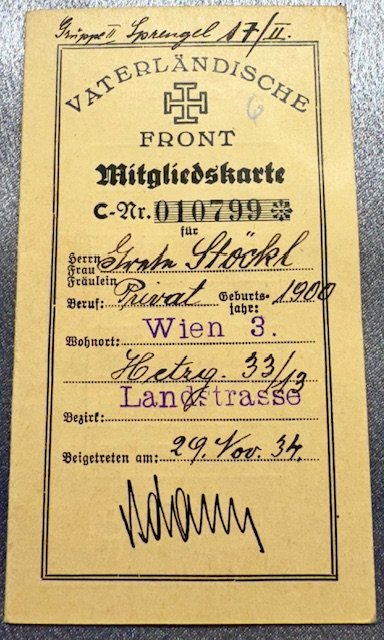 Gruppe II Sprengel 17/II.
VATERLÄNDISCHE
6
FRONT
Mitgliedskarte
C-Nr. 010799
für
Herrn
Frau
Fräulein
Grete Stöckl
Beruf: Privat Geburtsjahr: 1900
Wohnort: Wien 3.
Hetzg. 33/13
Bezirk: Landstrasse
Beigetreten am: 29. Nov. 34.